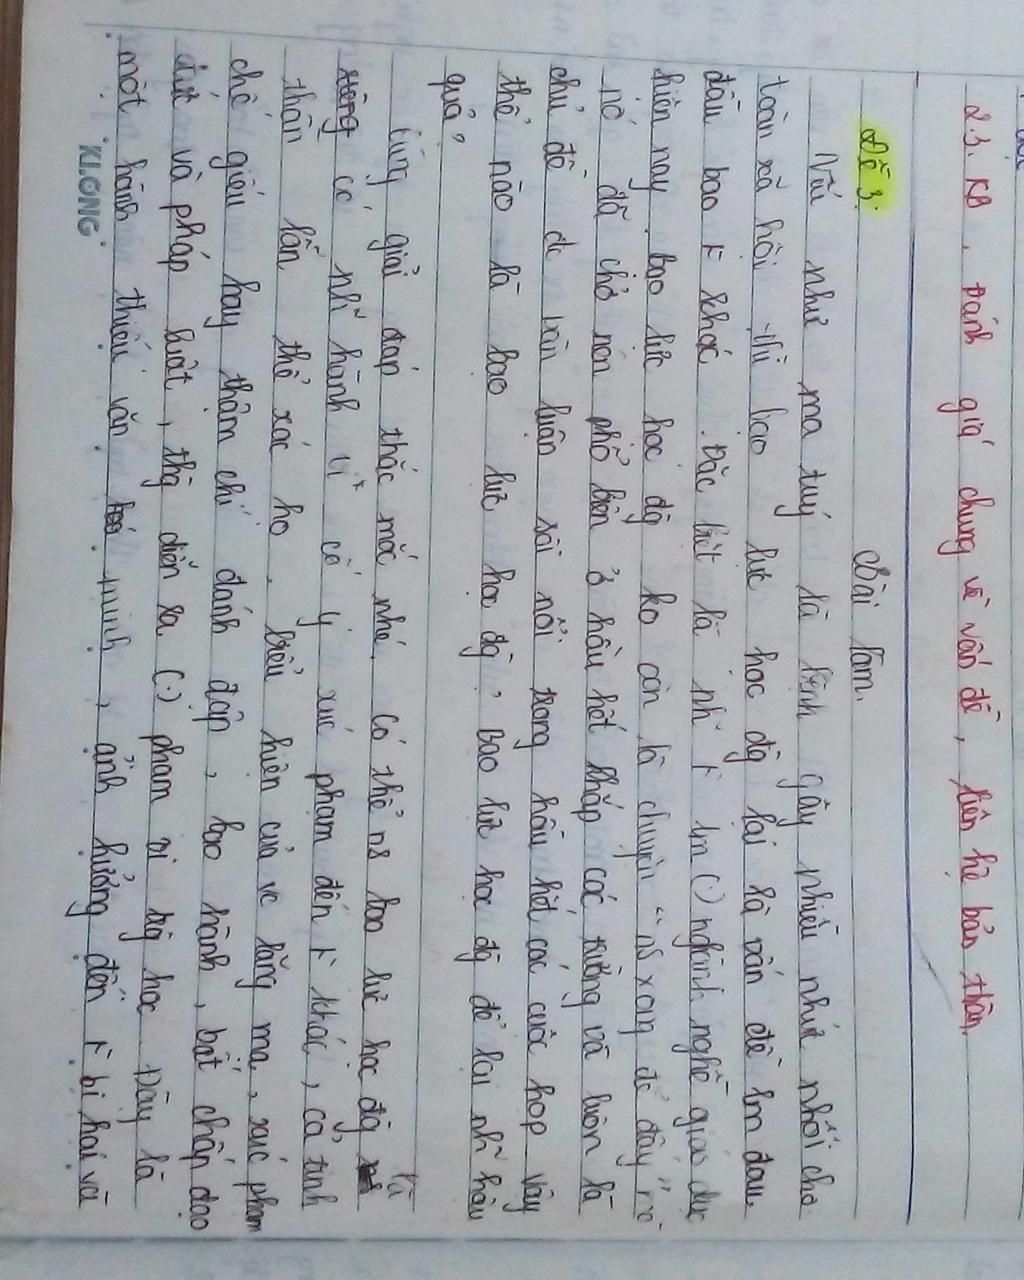 2.3. KB. Đánh giá chung về vấn đề, liên hệ bản thân.
Đề 3:
Bài làm.
Nếu như ma tuý là bệnh gây nhiều nhức nhối cho
toàn xã hội thì bạo lực học đg lại là vấn đề lm đau
đầu bao khác. Đặc biệt là nh lm (.) nghành nghề giáo dục
hiện nay bạo lực học đg ko còn là chuyện "ns xong để đấy" mà
nó đã chở nên phổ biến ở hầu hết khắp các trường và luôn là
chủ đề đc bàn luận sôi nổi trong hầu hết các cuộc họp vậy
thế nào là bạo lực học đg? Bạo lực học đg để lại nh~ hậu
quả?
Cùng giải đáp thắc mắc nhé. Có thể ns bạo lực học đg là
có nh~ hành vi cố ý xúc phạm đến khác, cả tinh
thần lẫn thể xác họ. biểu hiện của vc lăng mạ, xúc phạm
chế giếu hay thậm chí đánh đập, bạo hành, bất chấp đạo
đức và pháp luật, đg diễn ra (.) phạm vi học Đây là
một hành thiếu văn minh, ảnh hưởng đến bị hại và
KLONG